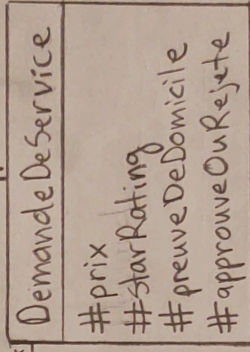 DemandeDeService
#prix
#starRating
#preuveDeDomicile
#approuveOuRejete